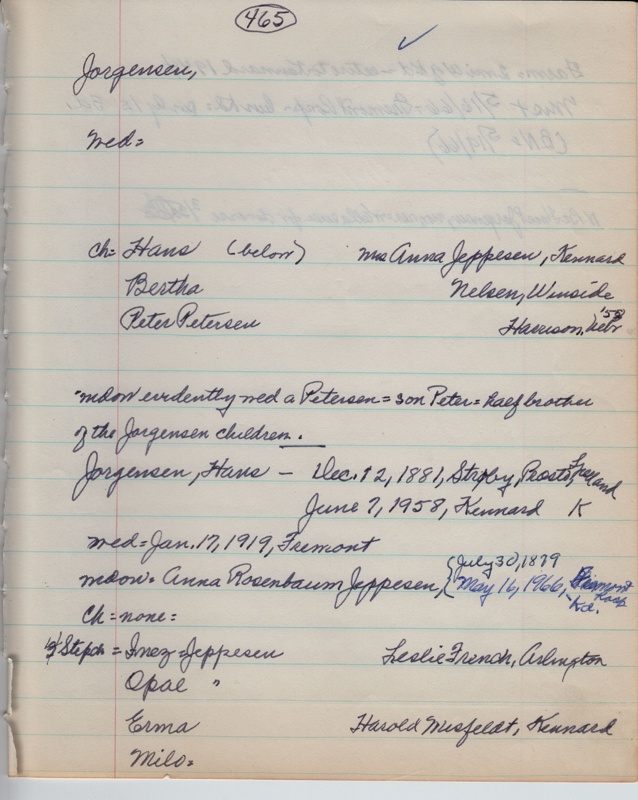 465
Jorgensen,
Wed=
Ch= Hans (below) Mrs Anna Jeppesen, Kennard
Bertha Nelsen, Winside
Peter Petersen Harrison, Nebr '58
"Mdow evidently wed a Petersen = son Peter = half brother
of the Jorgensen children.
Jorgensen, Hans — Dec. 12, 1881,
June 7, 1958, Kennard K
Wed= Jan. 17, 1919, Fremont
Mdow= Anna Rosenbaum Jeppesen, (July 30, 1879
May 16, 1966, Fremont Hosp Kd.
Ch= none=
Stepch = Inez = Jeppesen Leslie French, Arlington
Opal "
Erma Harold Misfeldt, Kennard
Milo=